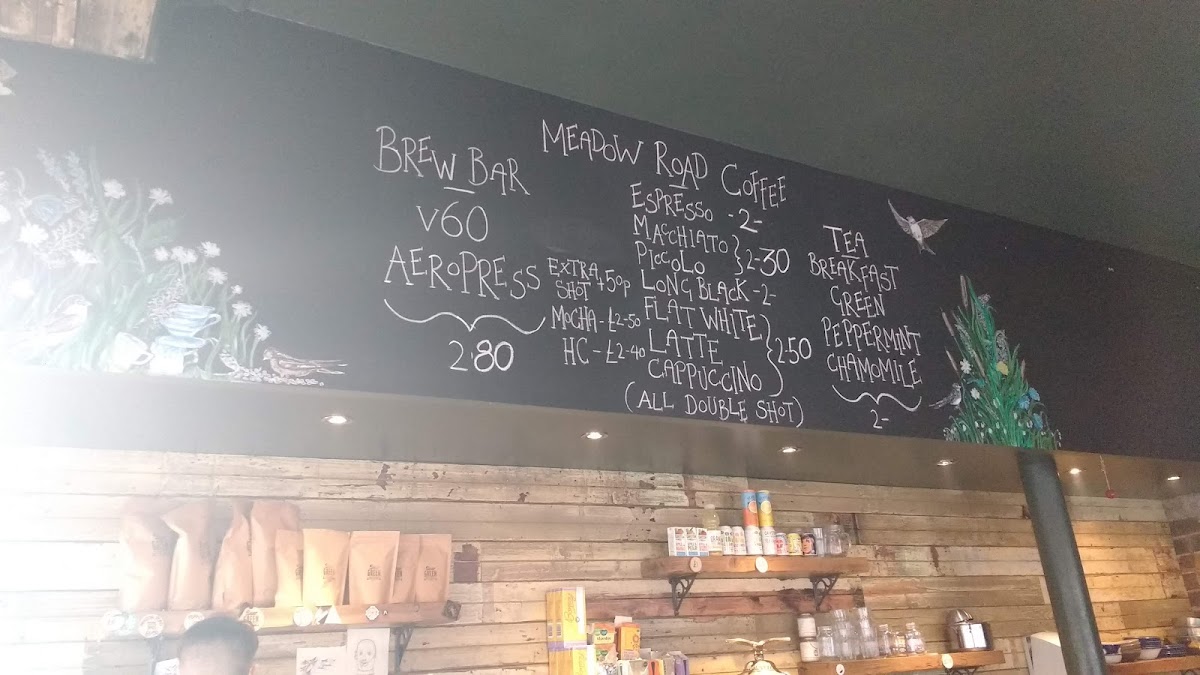 BREW BAR
V60
AEROPRESS
2.80
MEADOW ROAD COFFEE
ESPRESSO - 2-
MACCHIATO
PICCOLO
2-30
LONG BLACK - 2-
FLAT WHITE
LATTE
CAPPUCCINO
2.50
(ALL DOUBLE SHOT)
EXTRA SHOT +50p
MOCHA - £2-50
HC - £2-40
TEA
BREAKFAST
GREEN
PEPPERMINT
CHAMOMILE
2-